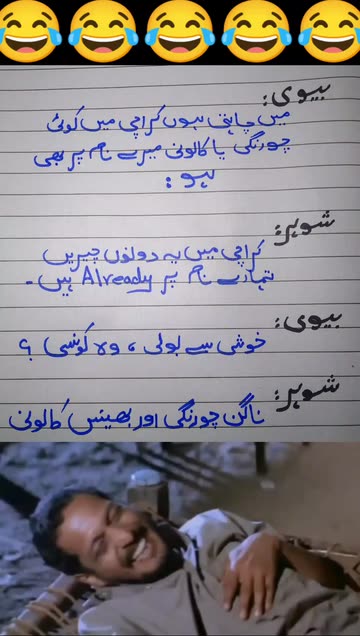 بیوی:
میں چاہتی ہوں کراچی میں کوئی
چورنگی یا کالونی میرے نام پر بھی
ہو :
شوہر:
کراچی میں یہ دونوں چیزیں
تمہارے نام پر Already ہیں۔
بیوی:
خوشی سے بولی ، وہ کونسی ؟
شوہر:
ناگن چورنگی اور بھینس کالونی